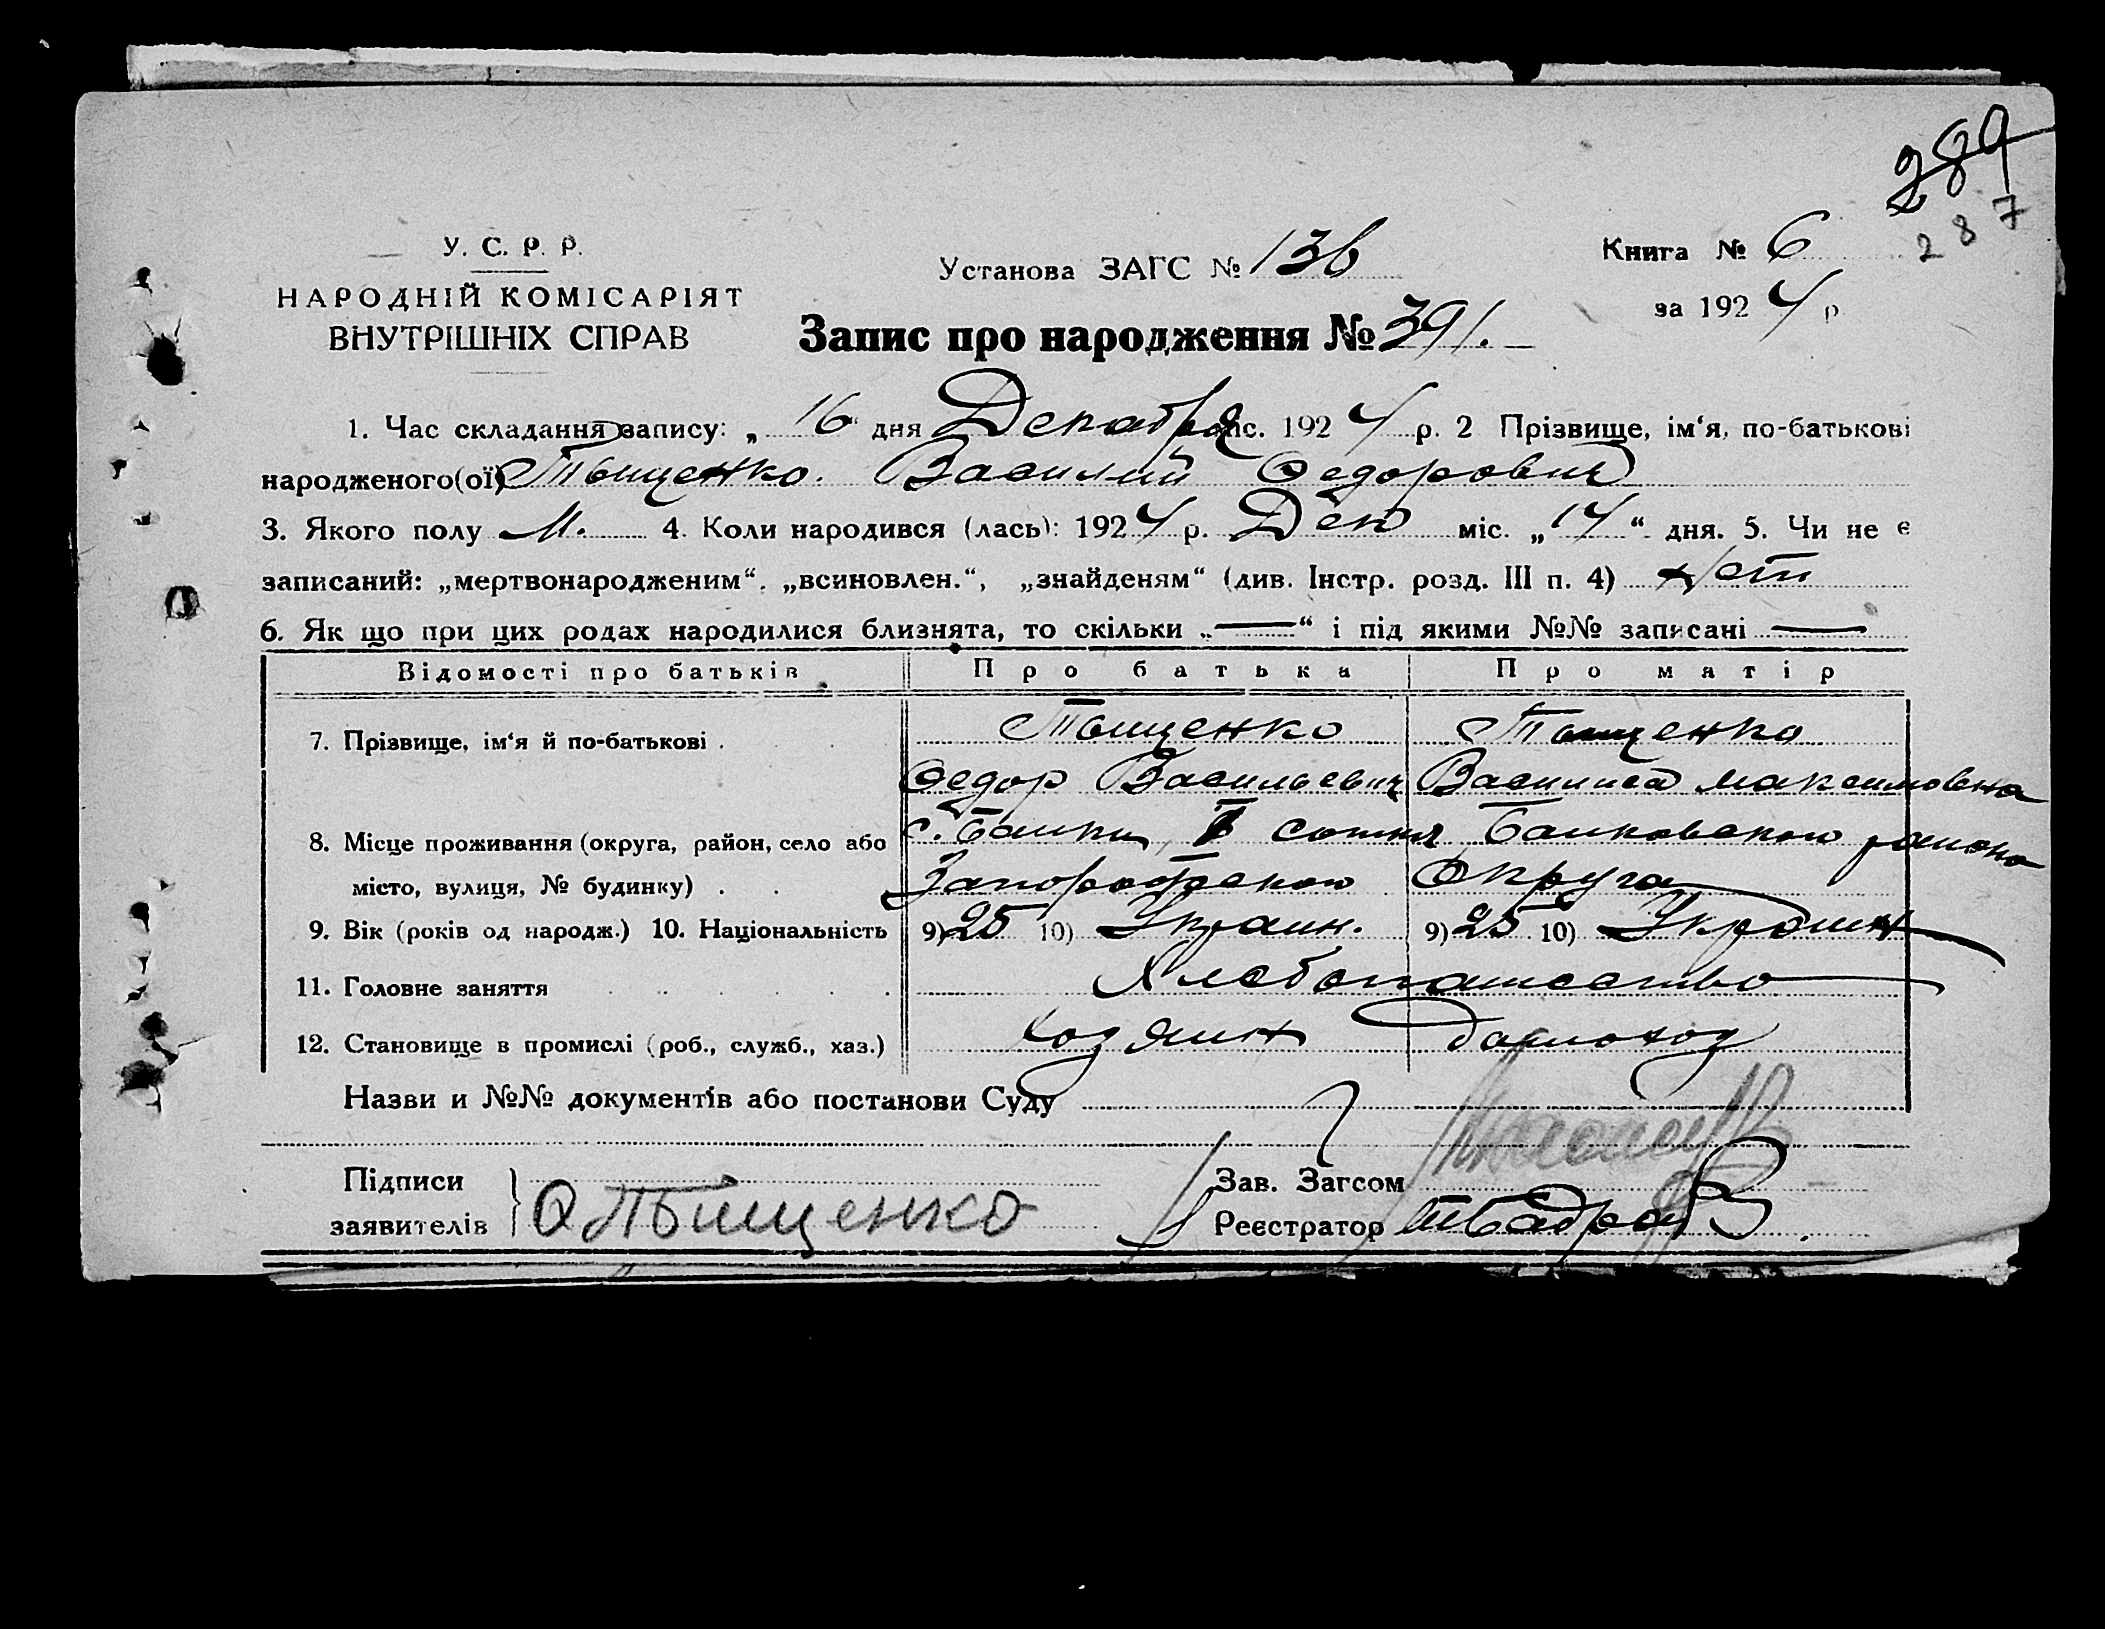 289
287
У. С. Р. Р.
НАРОДНІЙ КОМІСАРІЯТ
ВНУТРІШНІХ СПРАВ
Установа ЗАГС № 136
Книга № 6
за 1924 р
Запис про народження № 391.
1. Час складання запису: „16“ дня Декабря міс. 1924 р. 2 Прізвище, ім‘я, по-батькові
народженого(ої) Тыщенко. Василий Федорович
3. Якого полу М. 4. Коли народився (лась): 1924 р. Дек міс. „14“ дня. 5. Чи не є
записаний: „мертвонародженим“, „всиновлен.“, „знайденям“ (див. Інстр. розд. III п. 4) Нет
6. Як що при цих родах народилися близнята, то скільки „—“ і під якими №№ записані —
Відомості про батьків Про батька Про матір
7. Прізвище, ім‘я й по-батькові . Тыщенко Тыщенко
Федор Васильевич Василиса Максимовна
8. Місце проживання (округа, район, село або с. Балки, сотня Балковского района
місто, вулиця, № будинку) . Запорожского Округа
9. Вік (років од народж.) 10. Національність 9) 25 10) Украин. 9) 25 10) Украин
11. Головне заняття Хлебопашество
12. Становище в промислі (роб., служб., хаз.) хозяин домохоз
Назви и №№ документів або постанови Суду
Підписи Зав. Загсом
заявителів Ф Тыщенко Реєстратор